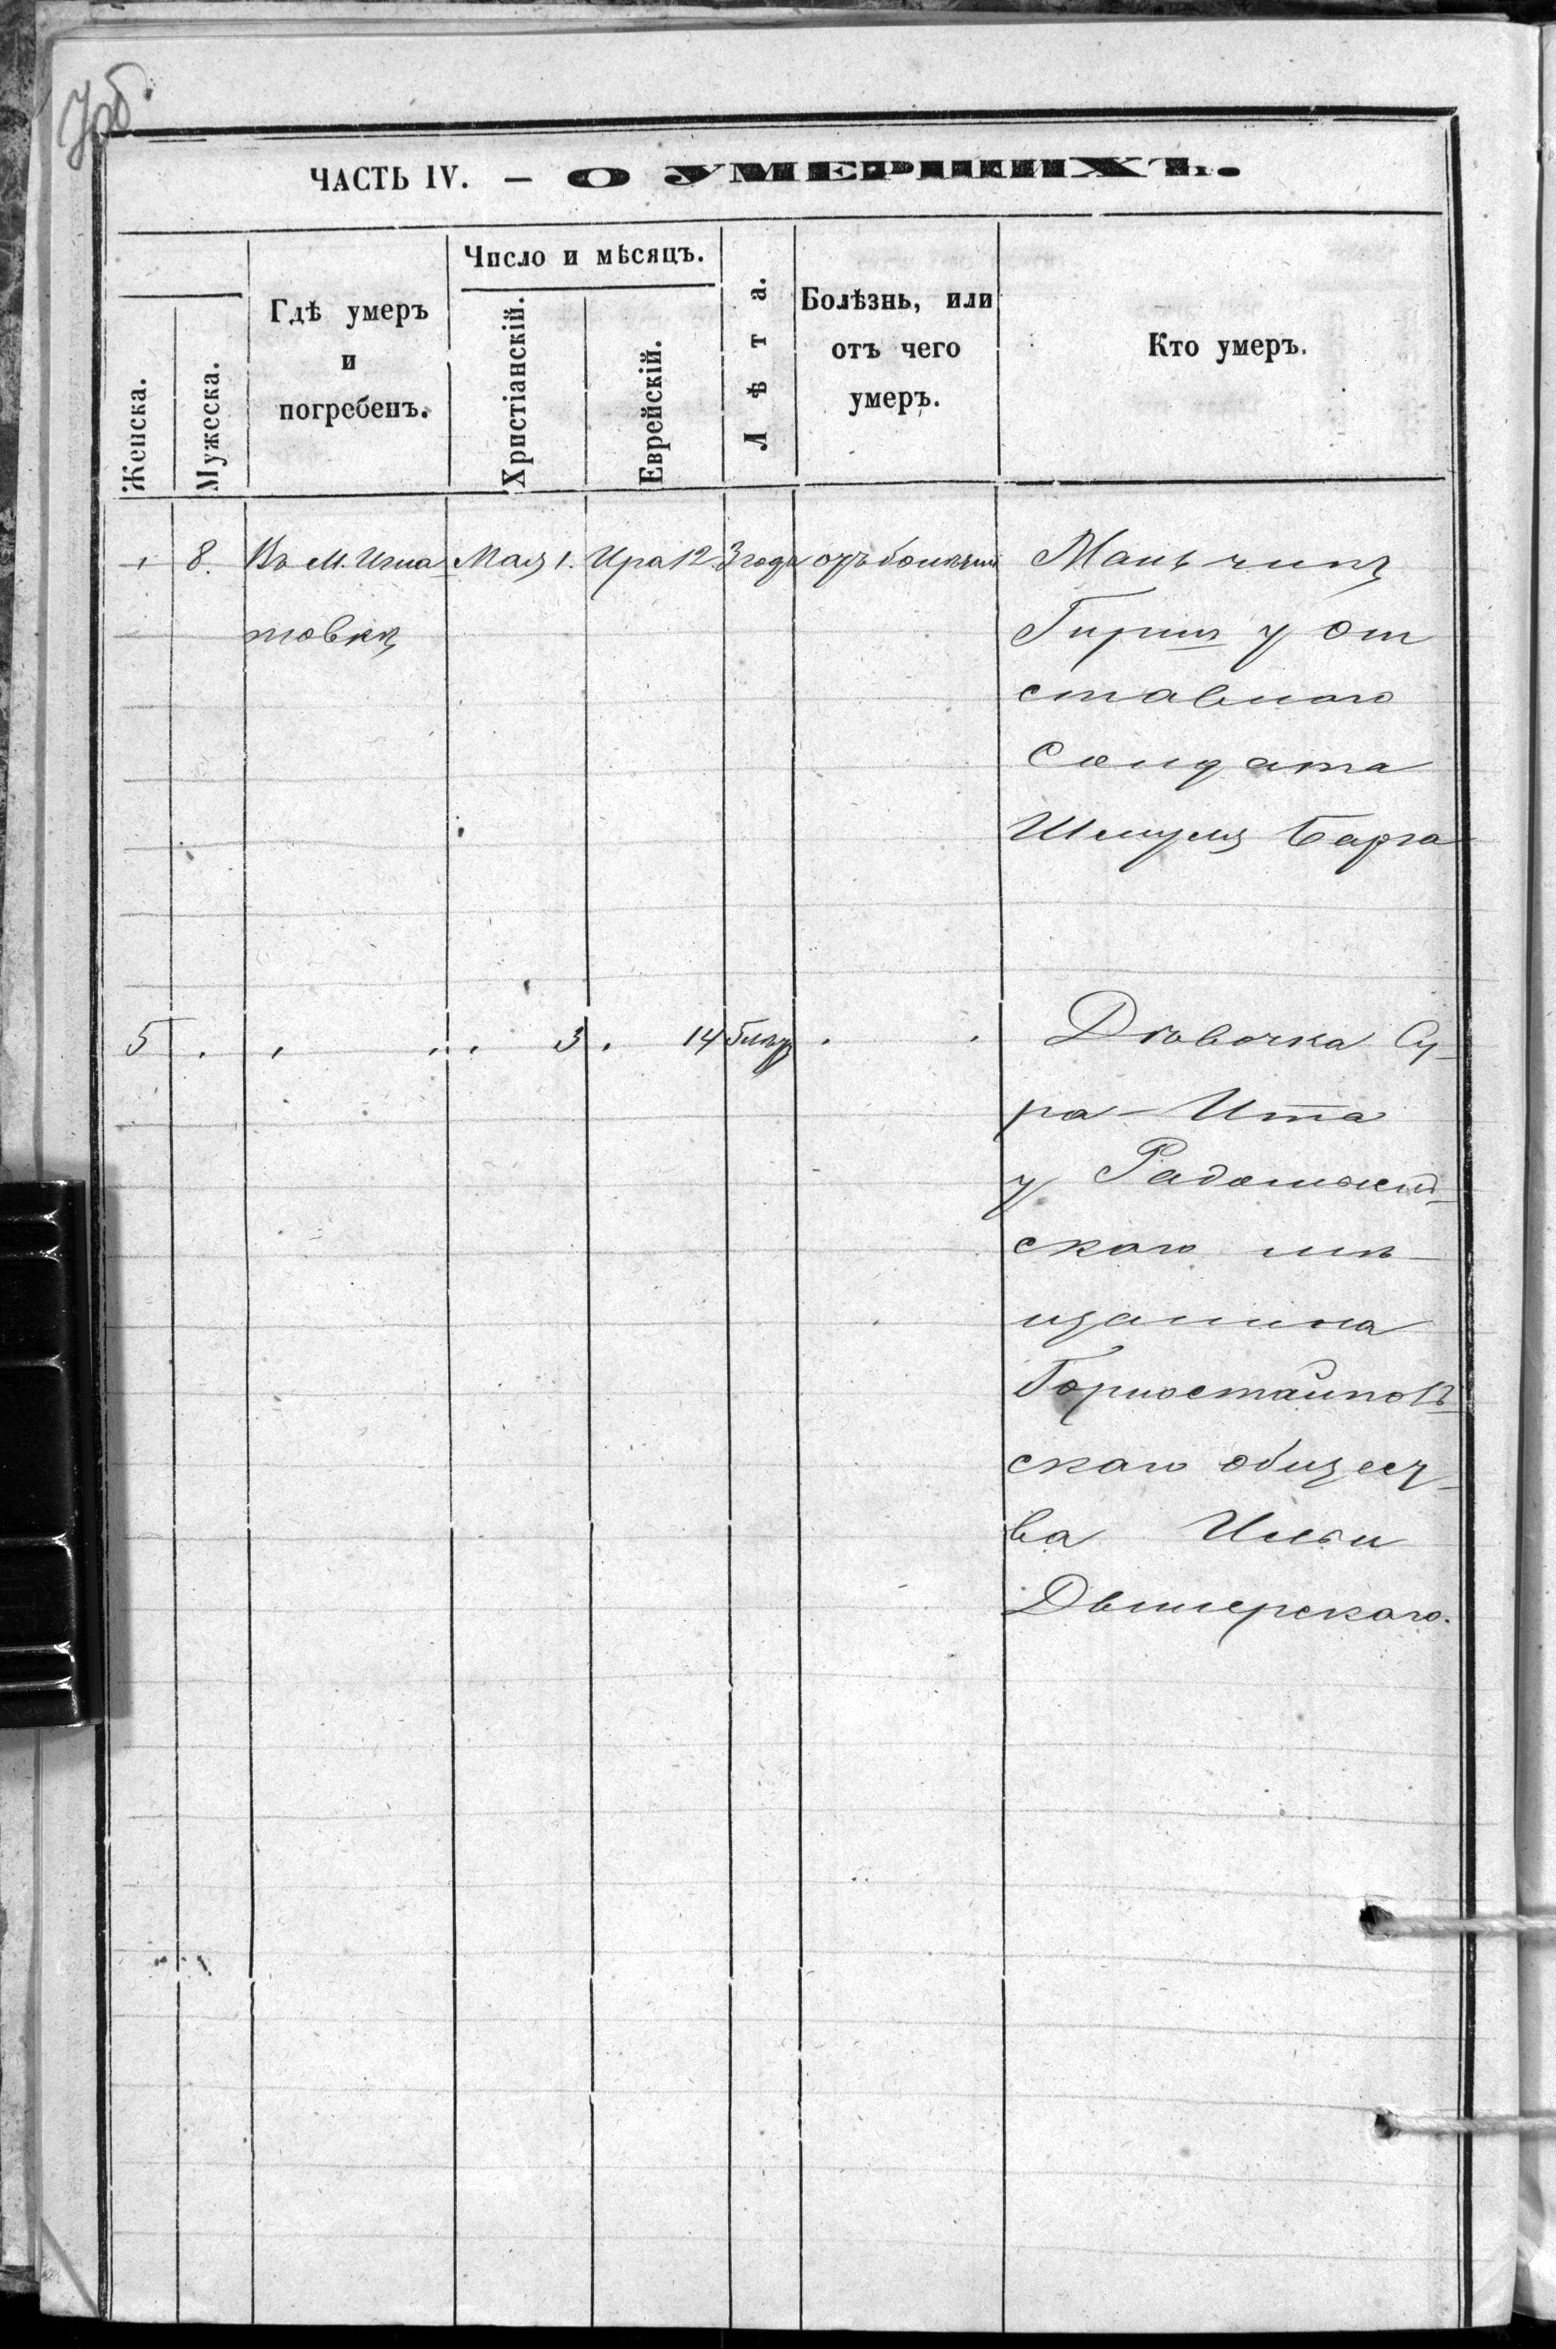 Уоб.
ЧАСТЬ IV. — О УМЕРШИХЪ.
Женска.
Мужеска.
Гдѣ умеръ
и
погребенъ.
Число и мѣсяцъ.
Христіанскій.
Еврейскій.
Лѣта.
Болѣзнь, или
отъ чего
умеръ.
Кто умеръ.
8. Въ М. Игна Мая 1. Ира 12. 3 года отъ болѣзни Мальчикъ
товкѣ Гиршъ у от
ставного
Солдата
Шмуля Барга
5 3 14 5 лѣтъ Дѣвочка Су-
ра-Ита
у Радомысль-
скаго мѣ-
щанина
Горностайпол-
скаго общест-
ва Ильи